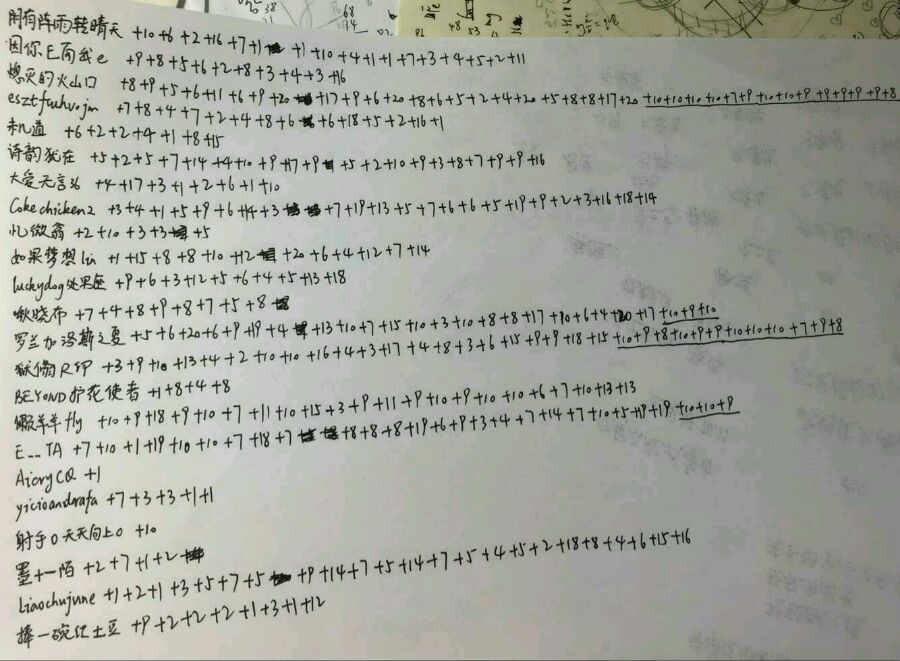 38
21
68
阴有阵雨转晴天 +10+6+2+16+7+1 +1+10+4+1+1+7+3+4+5+2+11
因你E而我e +9+8+5+6+2+8+3+4+3+16
熄灭的火山口 +8+9+5+6+11+6+9+20 +17+9+6+20+8+6+5+2+4+20+5+8+8+17+20+10+10+10+10+7+9+10+10+9+9+9+9+9+8
esztfuhvojm +7+8+4+7+2+4+8+6 +6+18+5+2+16+1
未几道 +6+2+2+4+1+8+15
诗韵犹在 +5+2+5+7+14+4+10+9+17+9 +5+2+10+9+3+8+7+9+9+16
大爱无言36 +4+17+3+1+2+6+1+10
Cokechicken2 +3+4+1+5+9+6+14+3 +7+19+13+5+7+6+6+5+19+9+2+3+16+18+14
忆微翕 +2+10+3+3 +5
如果梦想lin +1+15+8+8+10+12 +20+6+4+12+7+14
luckydog处男座 +9+6+3+12+5+6+4+5+13+18
啾晓布 +7+4+8+9+8+7+5+8
罗兰加洛斯之夏 +5+6+20+6+9+19+4 +13+10+7+15+10+3+10+8+8+17+20+6+4+20+17+10+9+10
狱偩RIP +3+9+10+13+4+2+10+10+16+4+3+17+4+8+3+6+15+9+9+18+15+10+9+8+10+9+9+10+10+10+7+9+8
BEYOND护花使者 +1+8+4+8
懒羊羊fly +10+9+18+9+10+7+11+10+15+3+9+11+9+10+9+10+10+6+7+10+13+13
E__TA +7+10+1+19+10+10+7+18+7 +8+8+8+19+6+9+3+4+7+14+7+10+5+19+19+10+10+9
AicryCQ +1
yicioandrafa +7+3+3+1+1
射手0天天向上0 +10
墨十一陌 +2+7+1+2
Liaochujune +1+2+1+3+5+7+5 +9+14+7+5+14+7+5+4+5+2+18+8+4+6+15+16
捧一碗红土豆 +9+2+2+2+1+3+1+12